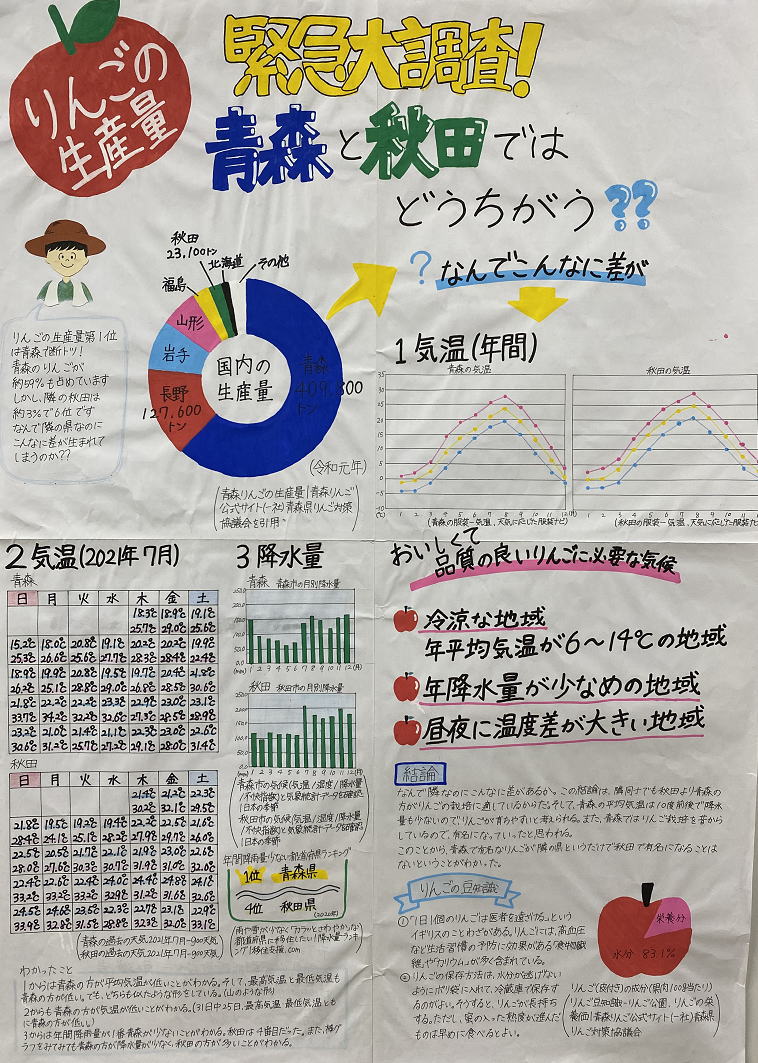 りんごの
生産量
緊急大調査!
青森と秋田では
どうちがう??
?なんでこんなに差が
秋田
23,100トン
北海道
その他
福島
山形
岩手
長野
127,600
トン
国内の
生産量
青森
409,800
トン
(令和元年)
(青森りんごの生産量|青森りんご
公式サイト(一社)青森県りんご対策
協議会を引用)
りんごの生産量第1位
は青森で断トツ!
青森のりんごが
約59%も占めています
しかし、隣の秋田は
約3%で6位です
なんで隣の県なのに
こんなに差が生まれて
しまうのか??
1気温(年間)
青森の気温
秋田の気温
35
30
25
20
15
10
5
0
-5
-10
(℃)
1 2 3 4 5 6 7 8 9 10 11 12(月)
1 2 3 4 5 6 7 8 9 10 11 12
(青森の服装-気温、天気に応じた服装ナビ)
(秋田の服装-気温、天気に応じた服装ナビ
2気温(2021年7月)
青森
日 月 火 水 木 金 土
18.3℃ 18.9℃ 19.1℃
25.7℃ 29.0℃ 25.6℃
15.2℃ 18.0℃ 20.8℃ 19.1℃ 20.2℃ 20.2℃ 19.9℃
25.3℃ 26.6℃ 25.6℃ 27.7℃ 28.3℃ 28.4℃ 22.4℃
18.9℃ 19.9℃ 20.8℃ 19.5℃ 19.7℃ 20.4℃ 21.8℃
26.2℃ 25.1℃ 28.8℃ 29.0℃ 26.8℃ 28.5℃ 30.6℃
21.8℃ 22.2℃ 22.2℃ 23.3℃ 22.9℃ 23.0℃ 23.1℃
33.7℃ 34.2℃ 32.2℃ 32.6℃ 27.3℃ 28.5℃ 28.9℃
23.2℃ 21.0℃ 21.4℃ 21.1℃ 22.3℃ 23.0℃ 22.6℃
30.6℃ 31.2℃ 25.7℃ 27.2℃ 29.1℃ 28.0℃ 31.4℃
秋田
日 月 火 水 木 金 土
21.4℃ 21.2℃ 22.3℃
30.2℃ 32.1℃ 29.5℃
21.8℃ 19.5℃ 19.2℃ 19.4℃ 22.2℃ 22.5℃ 21.6℃
28.4℃ 24.1℃ 25.1℃ 28.2℃ 27.9℃ 29.7℃ 26.0℃
22.5℃ 20.5℃ 21.7℃ 22.1℃ 21.9℃ 23.0℃ 22.6℃
28.0℃ 27.6℃ 30.3℃ 30.7℃ 31.9℃ 31.0℃ 32.0℃
22.4℃ 22.6℃ 22.4℃ 24.0℃ 24.4℃ 24.8℃ 24.1℃
33.2℃ 33.2℃ 33.2℃ 32.9℃ 31.2℃ 31.6℃ 32.6℃
24.5℃ 24.6℃ 23.6℃ 22.3℃ 22.7℃ 23.1℃ 22.9℃
33.9℃ 32.8℃ 31.5℃ 28.8℃ 32.3℃ 32.0℃ 33.1℃
(青森の過去の天気2021年7月-goo天気
秋田の過去の天気2021年7月-goo天気)
3降水量
青森 青森市の月別降水量
250.0
200.0
150.0
100.0
50.0
0.0
(mm) 1 2 3 4 5 6 7 8 9 10 11 12(月)
秋田 秋田市の月別降水量
250.0
200.0
150.0
100.0
50.0
0.0
(mm) 1 2 3 4 5 6 7 8 9 10 11 12(月)
(青森市の気候(気温/湿度/降水量
/不快指数)と気象統計データを確認
|日本の季節
秋田市の気候(気温/湿度/降水量
/不快指数)と気象統計データを確認
|日本の季節)
年間降雨量少ない都道府県ランキング
1位 青森県
4位 秋田県
(2020年)
(雨や雪が少なく「カラッとさわやかな」
都道府県に移住したい!降水量ランキ
ング|移住支援.com)
わかったこと
1からは青森の方が平均気温が低いことがわかる。そして、最高気温と最低気温も
青森の方が低い。でも、どちらも似たような形をしている。(山のような形)
2からも青森の方が気温が低いことがわかる。(31日中25日、最高気温 最低気温とも
に青森の方が低い。)
3からは年間降雨量が1番青森が少ないことがわかる。秋田は4番目だった。また、棒グ
ラフをみてみても青森の方が降水量が少なく、秋田の方が多いことがわかる。
おいしくて
品質の良いりんごに必要な気候
冷涼な地域
年平均気温が6〜14℃の地域
年降水量が少なめの地域
昼夜に温度差が大きい地域
結論
なんで隣なのにこんなに差があるか。この結論は、隣同士でも秋田より青森の
方がりんごの栽培に適しているからだ。そして、青森の平均気温は10度前後で降水
量も少ないのでりんごが育ちやすいと考えられる。また、青森ではりんご栽培を昔から
しているので、有名になっていったと思われる。
このことから、青森で有名なりんごが隣の県というだけで秋田で有名になることは
ないということがわかった。
りんごの豆知識
①「1日1個のりんごは医者を遠ざける」という
イギリスのことわざがある。りんごには、高血圧
など生活習慣の予防に効果がある「食物繊
維」や「カリウム」が多く含まれている。
②りんごの保存方法は、水分が逃げない
ようにポリ袋に入れて、冷蔵庫で保存す
るのがよい。そうすると、りんごが長持ち
する。ただし、蜜の入った熟度が進んだ
ものは早めに食べるとよい。
栄養分
水分 83.1%
りんご(皮付き)の成分(果肉100g当たり)
(りんご豆知識-りんご公園、りんごの栄
養価|青森りんご公式サイト(一社)青森県
りんご対策協議会)